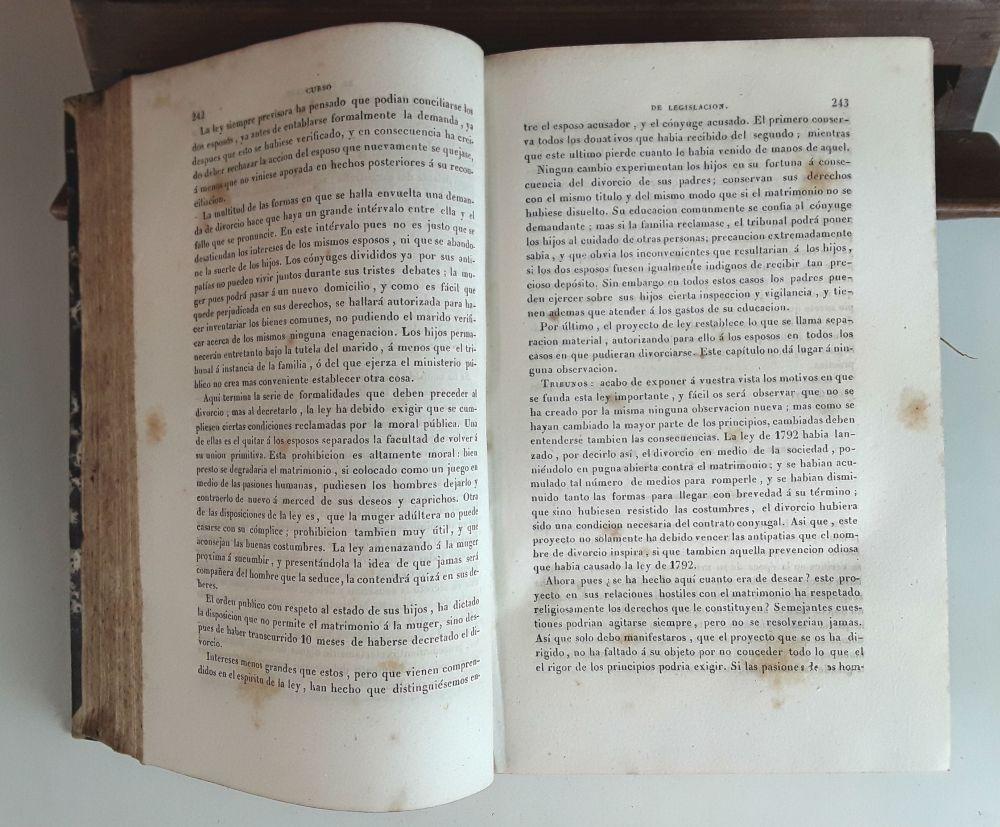 242
CURSO
La ley siempre previsora ha pensado que podian conciliarse los
dos esposos, ya antes de entablarse formalmente la demanda, ya
despues que esto se hubiese verificado, y en consecuencia ha crei-
do deber rechazar la accion del esposo que nuevamente se quejase,
á menos que no viniese apoyada en hechos posteriores á su recon-
ciliacion.
La multitud de las formas en que se halla envuelta una deman-
da de divorcio hace que haya un grande intérvalo entre ella y el
fallo que se pronuncie. En este intérvalo pues no es justo que se
desatiendan los intereses de los mismos esposos, ni que se abando-
ne la suerte de los hijos. Los cónyuges divididos ya por sus anti-
patías no pueden vivir juntos durante sus tristes debates; la mu-
ger pues podrá pasar á un nuevo domicilio, y como es fácil que
quede perjudicada en sus derechos, se hallará autorizada para ha-
cer inventariar los bienes comunes, no pudiendo el marido verifi-
car acerca de los mismos ninguna enagenacion. Los hijos perma-
necerán entretanto bajo la tutela del marido, á menos que el tri-
bunal á instancia de la familia, ó del que ejerza el ministerio pú-
blico no crea mas conveniente establecer otra cosa.
Aqui termina la serie de formalidades que deben preceder al
divorcio; mas al decretarlo, la ley ha debido exigir que se cum-
pliesen ciertas condiciones reclamadas por la moral pública. Una
de ellas es el quitar á los esposos separados la facultad de volver á
su union primitiva. Esta prohibicion es altamente moral: bien
presto se degradaria el matrimonio, si colocado como un juego en
medio de las pasiones humanas, pudiesen los hombres dejarlo y
contraerlo de nuevo á merced de sus deseos y caprichos. Otra
de las disposiciones de la ley es, que la muger adúltera no puede
casarse con su cómplice; prohibicion tambien muy útil, y que
aconsejan las buenas costumbres. La ley amenazando á la muger
proxima á sucumbir, y presentándola la idea de que jamas será
compañera del hombre que la seduce, la contendrá quizá en sus de-
beres.
El orden publico con respeto al estado de sus hijos, ha dictado
la disposicion que no permite el matrimonio á la muger, sino des-
pues de haber transcurrido 10 meses de haberse decretado el di-
vorcio.
Intereses menos grandes que estos, pero que vienen compren-
didos en el espíritu de la ley, han hecho que distinguiésemos en-
DE LEGISLACION.
243
tre el esposo acusador, y el cónyuge acusado. El primero conser-
va todos los donativos que habia recibido del segundo; mientras
que este ultimo pierde cuanto le habia venido de manos de aquel.
Ningun cambio experimentan los hijos en su fortuna á conse-
cuencia del divorcio de sus padres; conservan sus derechos
con el mismo titulo y del mismo modo que si el matrimonio no se
hubiese disuelto. Su educacion comunmente se confia al cónyuge
demandante; mas si la familia reclamase, el tribunal podrá poner
los hijos al cuidado de otras personas; precaucion extremadamente
sabia, y que obvia los inconvenientes que resultarian á los hijos,
si los dos esposos fuesen igualmente indignos de recibir tan pre-
cioso depósito. Sin embargo en todos estos casos los padres pue-
den ejercer sobre sus hijos cierta inspeccion y vigilancia, y tie-
nen ademas que atender á los gastos de su educacion.
Por último, el proyecto de ley restablece lo que se llama sepa-
racion material, autorizando para ello á los esposos en todos los
casos en que pudieran divorciarse. Este capítulo no dá lugar á nin-
guna observacion.
TRIBUNOS: acabo de exponer á vuestra vista los motivos en que
se funda esta ley importante, y fácil os será observar que no se
ha creado por la misma ninguna observacion nueva; mas como se
hayan cambiado la mayor parte de los principios, cambiadas deben
entenderse tambien las consecuencias. La ley de 1792 habia lan-
zado, por decirlo así, el divorcio en medio de la sociedad, po-
niéndolo en pugna abierta contra el matrimonio; y se habian acu-
mulado tal número de medios para romperle, y se habian dismi-
nuido tanto las formas para llegar con brevedad á su término;
que sino hubiesen resistido las costumbres, el divorcio hubiera
sido una condicion necesaria del contrato conyugal. Asi que, este
proyecto no solamente ha debido vencer las antipatias que el nom-
bre de divorcio inspira, si que tambien aquella prevencion odiosa
que habia causado la ley de 1792.
Ahora pues ¿se ha hecho aquí cuanto era de desear? este pro-
yecto en sus relaciones hostiles con el matrimonio ha respetado
religiosamente los derechos que le constituyen? Semejantes cues-
tiones podrian agitarse siempre, pero no se resolverian jamas.
Asi que solo debo manifestaros, que el proyecto que se os ha di-
rigido, no ha faltado á su objeto por no conceder todo lo que el
el rigor de los principios podria exigir. Si las pasiones de los hom-